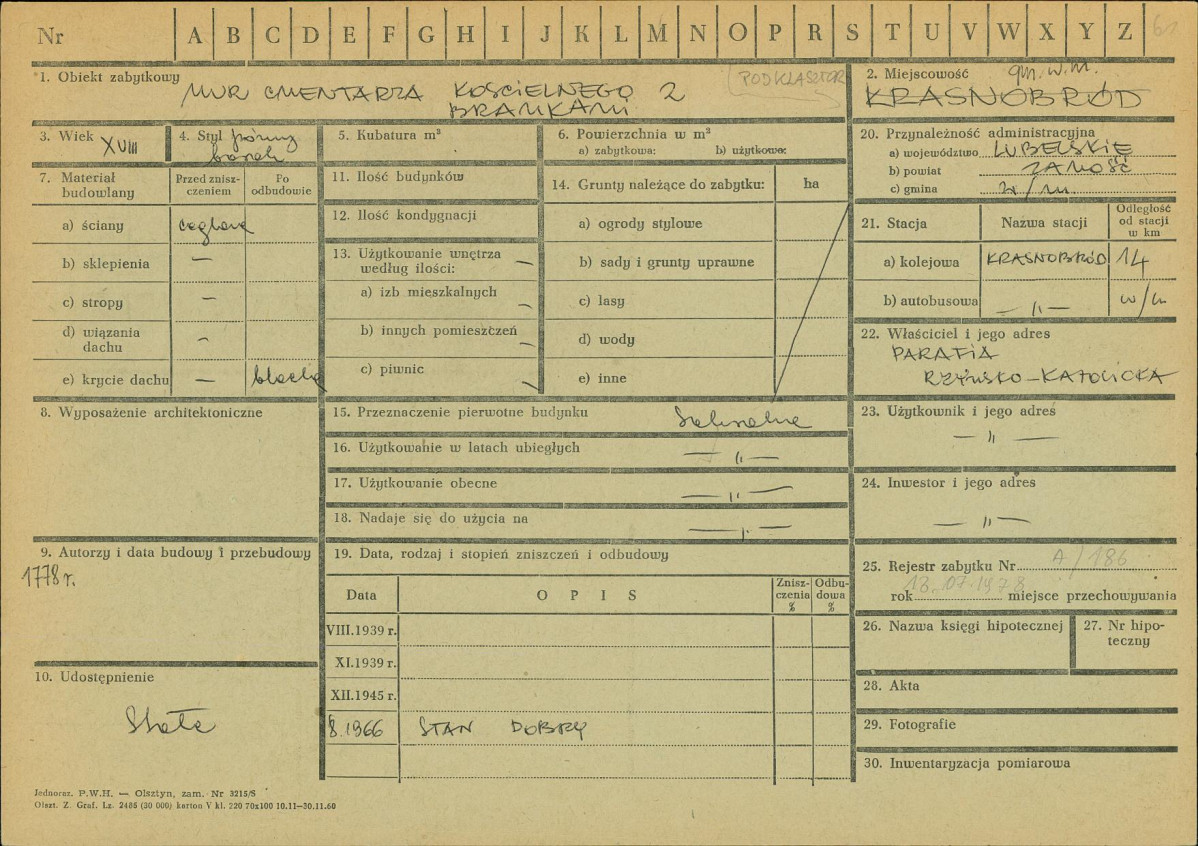 Nr A B C D E F G H I J K L M N O P R S T U V W X Y Z 61
1. Obiekt zabytkowy
MUR CMENTARZA KOŚCIELNEGO Z
BRAMKAMI
(PODKLASZTOR)
2. Miejscowość gm. w.m.
KRASNOBRÓD
3. Wiek XVIII
4. Styl późny
barok
5. Kubatura m³
6. Powierzchnia w m²
a) zabytkowa: b) użytkowa:
20. Przynależność administracyjna
a) województwo LUBELSKIE
b) powiat ZAMOŚĆ
c) gmina w/m
7. Materiał
budowlany
Przed znisz-
czeniem
Po
odbudowie
a) ściany ceglane
b) sklepienia —
c) stropy —
d) wiązania
dachu —
e) krycie dachu — blacha
11. Ilość budynków
12. Ilość kondygnacji
13. Użytkowanie wnętrza —
według ilości:
a) izb mieszkalnych —
b) innych pomieszczeń —
c) piwnic —
14. Grunty należące do zabytku: ha
a) ogrody stylowe
b) sady i grunty uprawne
c) lasy
d) wody
e) inne
21. Stacja Nazwa stacji
Odległość
od stacji
w km
a) kolejowa KRASNOBRÓD 14
b) autobusowa — „ — w/m
22. Właściciel i jego adres
PARAFIA
RZYMSKO-KATOLICKA
8. Wyposażenie architektoniczne
15. Przeznaczenie pierwotne budynku sakralne
16. Użytkowanie w latach ubiegłych — „ —
17. Użytkowanie obecne — „ —
18. Nadaje się do użycia na — „ —
23. Użytkownik i jego adres
— „ —
24. Inwestor i jego adres
— „ —
9. Autorzy i data budowy i przebudowy
1778 r.
19. Data, rodzaj i stopień zniszczeń i odbudowy
Data O P I S
Znisz-
czenia
%
Odbu-
dowa
%
VIII.1939 r.
XI.1939 r.
XII.1945 r.
8.1966 STAN DOBRY
25. Rejestr zabytku Nr A/186
rok 13.07.1978 miejsce przechowywania
26. Nazwa księgi hipotecznej
27. Nr hipo-
teczny
10. Udostępnienie
Stałe
28. Akta
29. Fotografie
30. Inwentaryzacja pomiarowa
Jednoraz. P.W.H. — Olsztyn, zam. Nr 3215/S
Olszt. Z. Graf. Lz. 2486 (30 000) karton V kl. 220 70x100 10.11—30.11.60